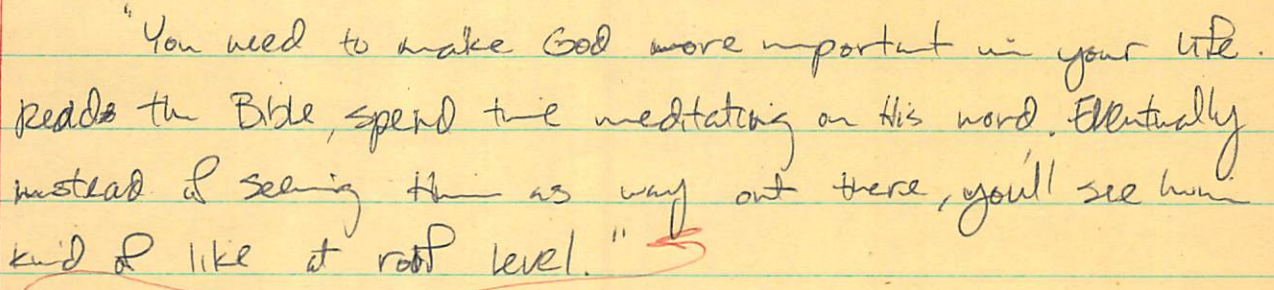 "You need to make God more important in your life.
Read the Bible, spend time meditating on His word. Eventually
instead of seeing Him as way out there, you'll see him
kind of like at roof level."